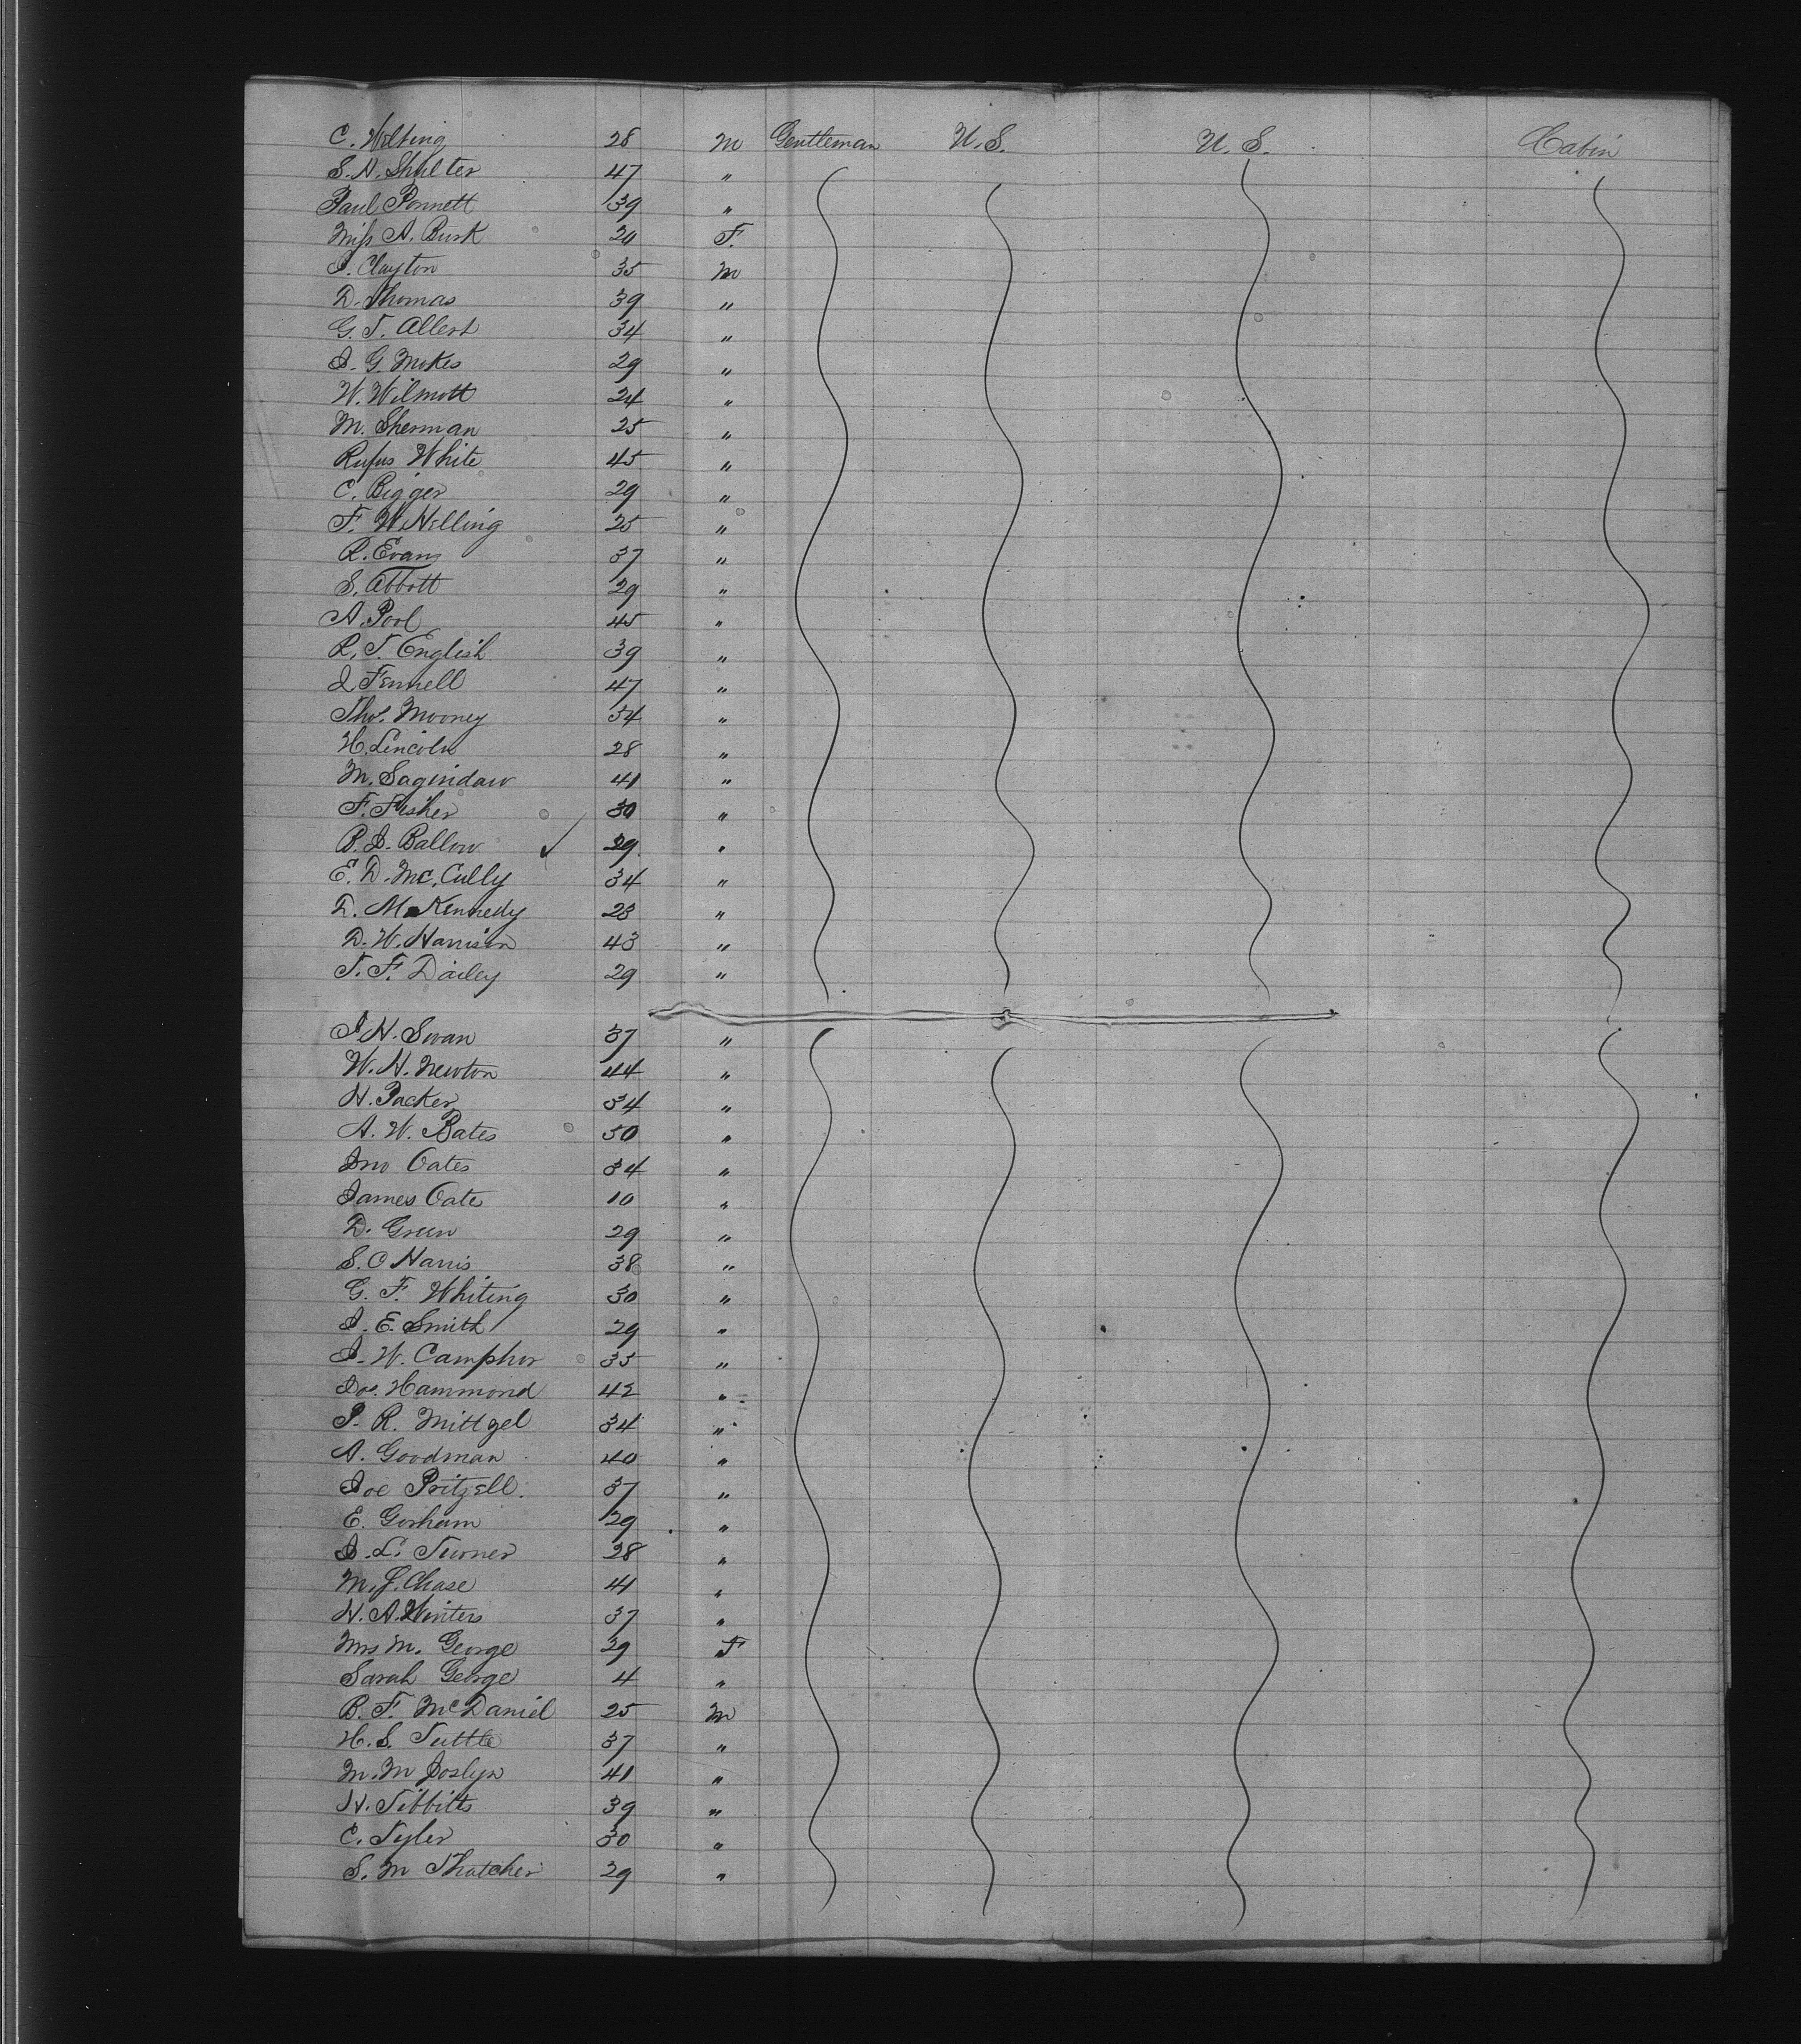 C. Wilting 28 M Gentleman U.S. U.S. Cabin
S. H. Shulter 47 "
Paul Ponnett 39 "
Miss A. Busk 20 F.
J. Clayton 35 M
D. Thomas 39 "
G. T. Allert 34 "
J. G. Mokes 29 "
W. Wilmott 24 "
M. Sherman 25 "
Rufus White 45 "
C. Bigger 29 "
F. W. Hilling 25 "
R. Evans 37 "
S. Abbott 29 "
A. Pool 45 "
R. T. English 39 "
J. Fennell 47 "
Thos. Mooney 34 "
H. Lincoln 28 "
M. Sagindaw 41 "
F. Fisher 30 "
B. J. Ballow ✓ 29 "
E. D. Mc. Cully 34 "
D. M Kennedy 23 "
D. W. Harrison 43 "
T. F. Dailey 29 "
J. H. Swan 37 "
W. H. Newton 44 "
H. Packer 34 "
A. W. Bates 50 "
Jno Oates 34 "
James Oate 10 "
D. Green 29 "
S. O Harris 38 "
G. F. Whiting 30 "
J. E. Smith 29 "
J. W. Camphor 35 "
Jos. Hammond 42 "
P. R. Mittzel 34 "
A. Goodman 40 "
Joe Pritzell. 37 "
E. Gorham 29 "
J. L. Turner 28 "
M. J. Chase 41 "
H. A. Winters 37 "
Mrs M. George 29 F
Sarah George 4 "
B. F. McDaniel 25 M
H. S. Tuttle 37 "
M. M Joslyn 41 "
H. Tibbitts 39 "
C. Tyler 30 "
S. M Thatcher 29 "